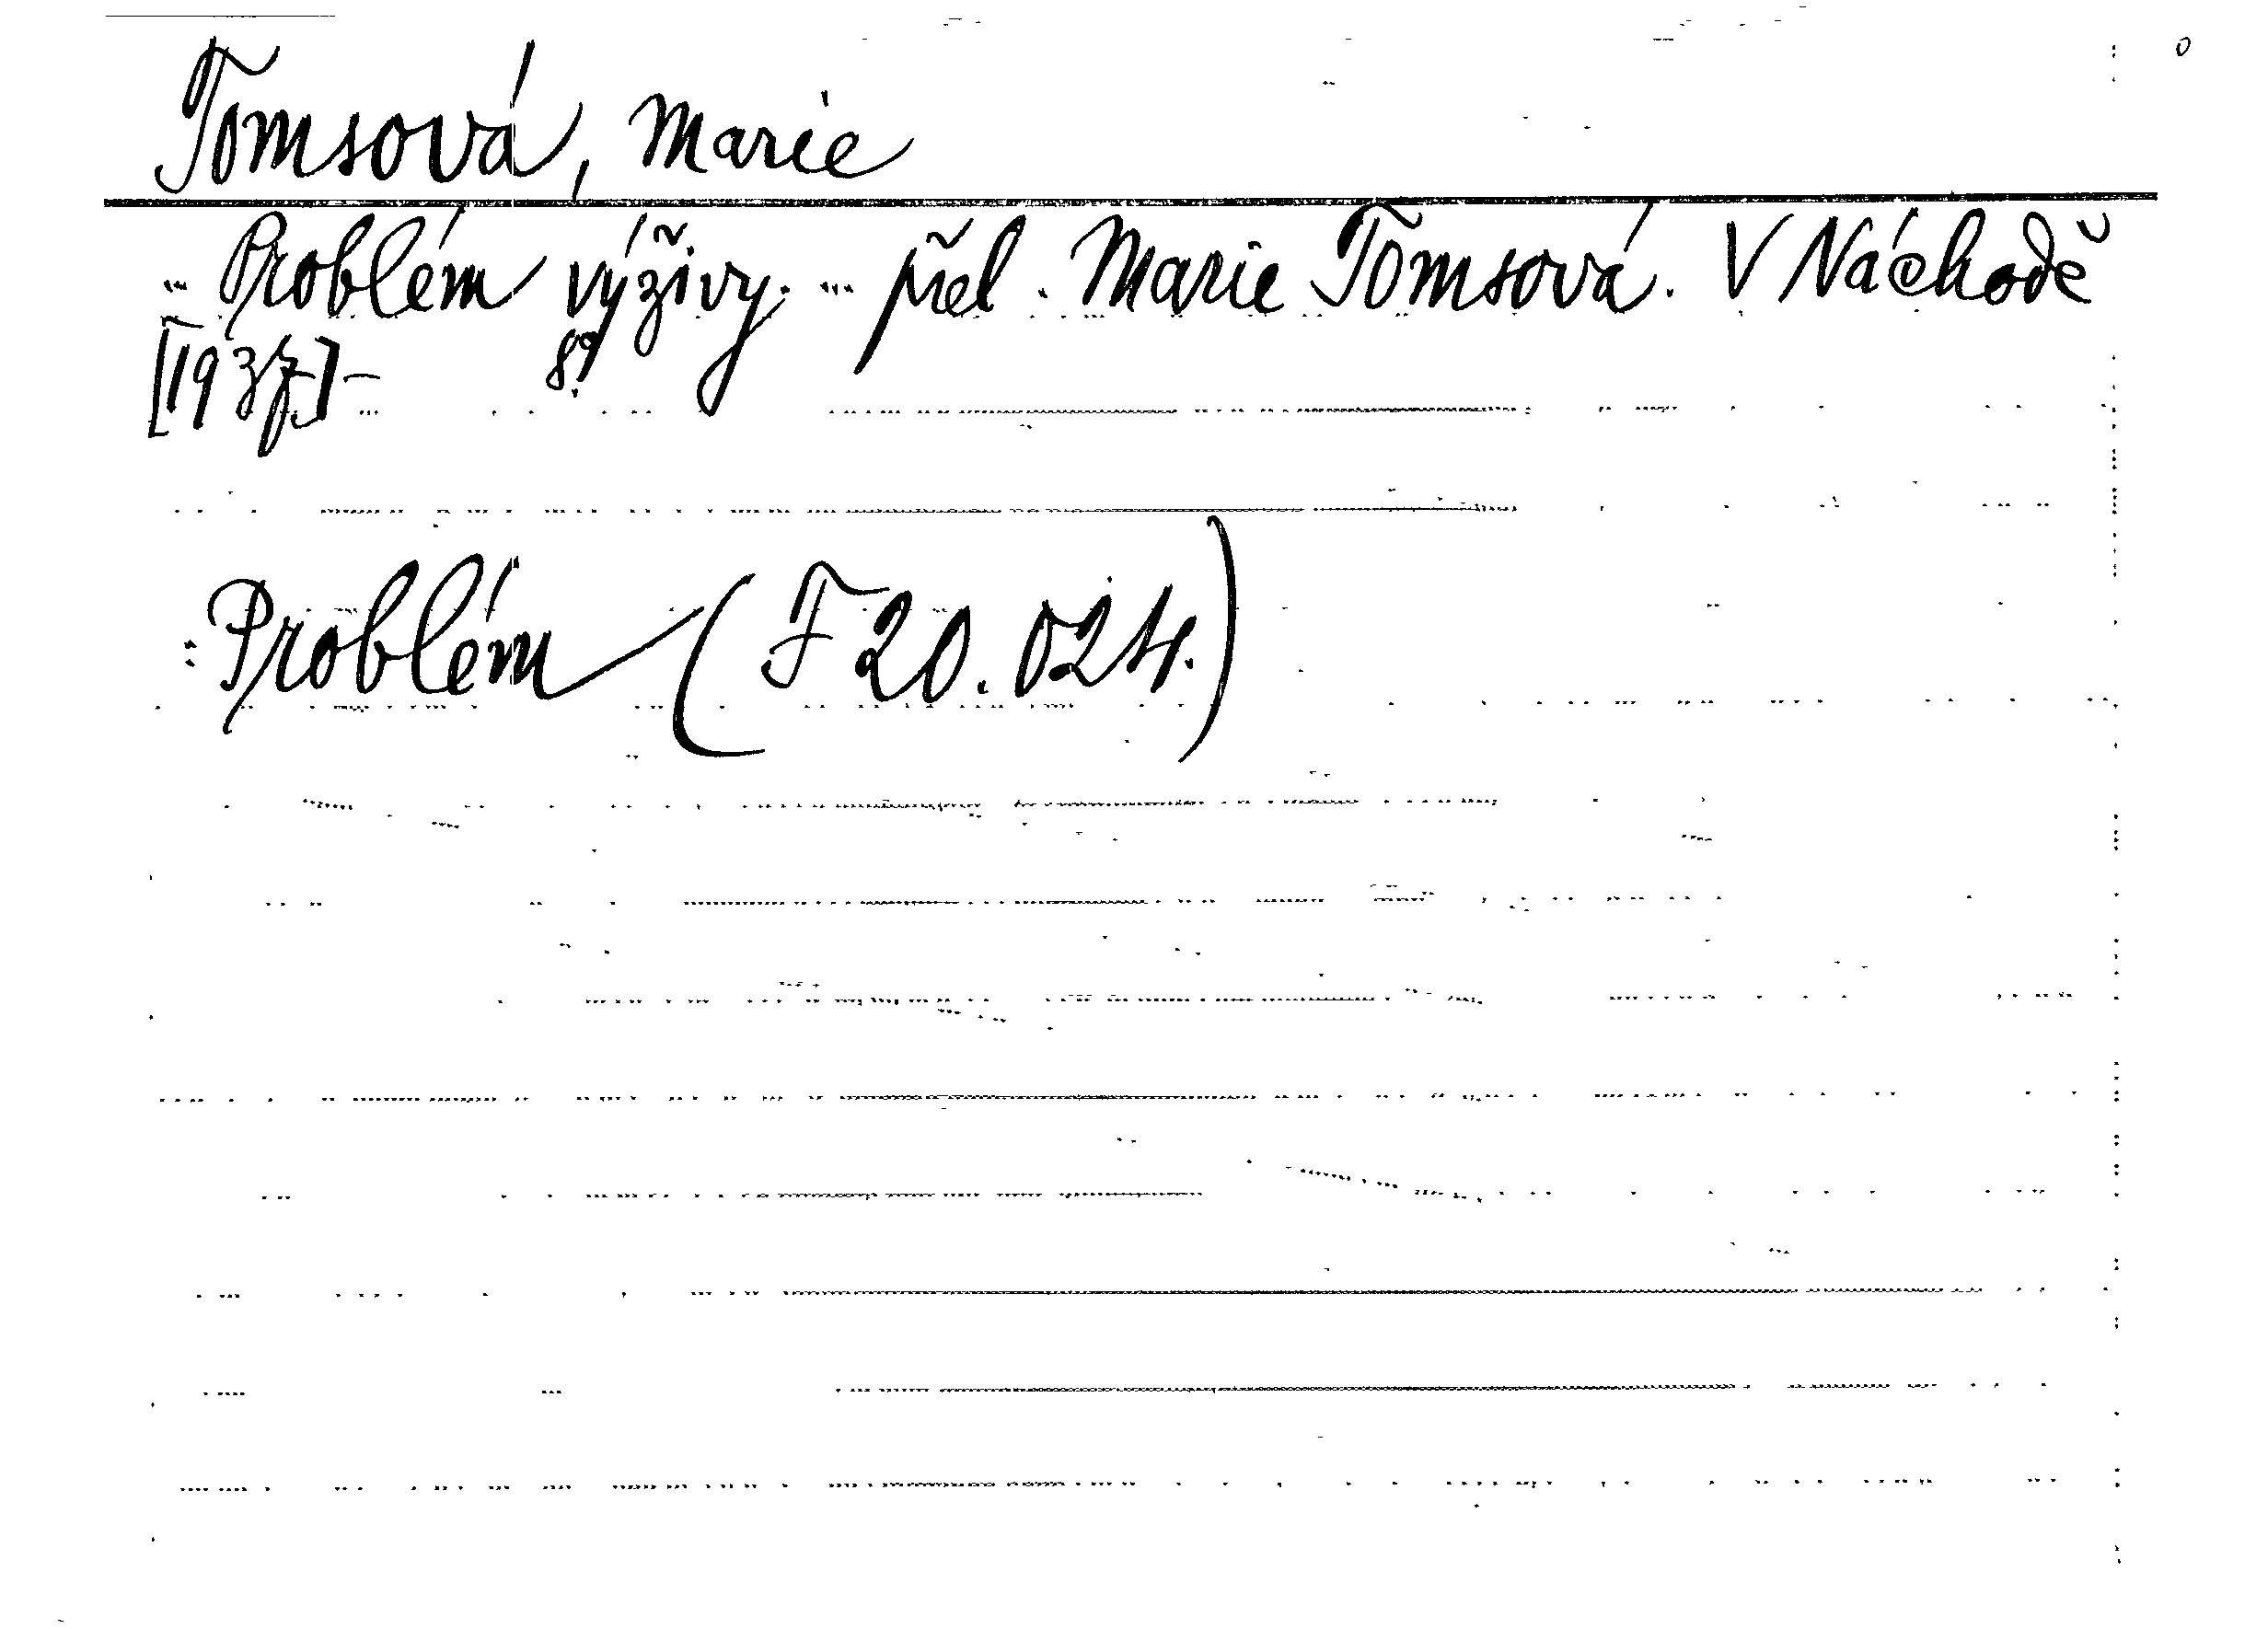 Tomsová, Marie
... Problém výživy. ... přel. Marie Tomsová. V Náchodě
[1937] - 8°.
: Problém (F 20.024.)